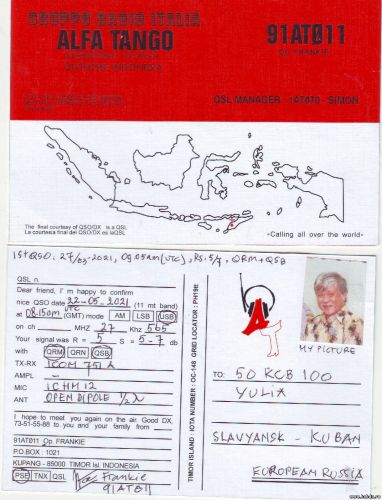 GRUPPO RADIO ITALIA
ALFA TANGO
91ATØ11
Op. FRANKIE
QSL MANAGER - 1AT070 - SIMON
The final courtesy of QSO/DX is a QSL
La courtesia final del QSO/DX es laQSL
«Calling all over the world»
1st QSO: 27/03-2021, 09.05am (UTC), RS: 5/7, QRM+QSB
QSL n.
Dear friend, I'm happy to confirm
nice QSO date 22-05-2021 (11 mt band)
UTC
at 08.15am (GMT) mode AM LSB USB
on ch MHZ 27 Khz 565
Your signal was R = 5 S = 5-7 db
with QRM QRN QSB
TX-RX ICOM 751A
AMPL –
MIC ICHM12
ANT OPEN DIPOLE 1/2 λ
I hope to meet you again on the air. Good DX,
73-51-55-88 to you and your family from
91AT011 Op. FRANKIE
P.O.BOX : 1021
KUPANG - 85000 TIMOR Isl. INDONESIA
PSE TNX QSL Frankie
91AT011
TIMOR ISLAND : IOTA NUMBER : OC-148 GRID LOCATOR : PH19tt
AT
MY PICTURE
TO: 50 RCB 100
YULIA
SLAVYANSK - KUBAN
EUROPEAN RUSSIA